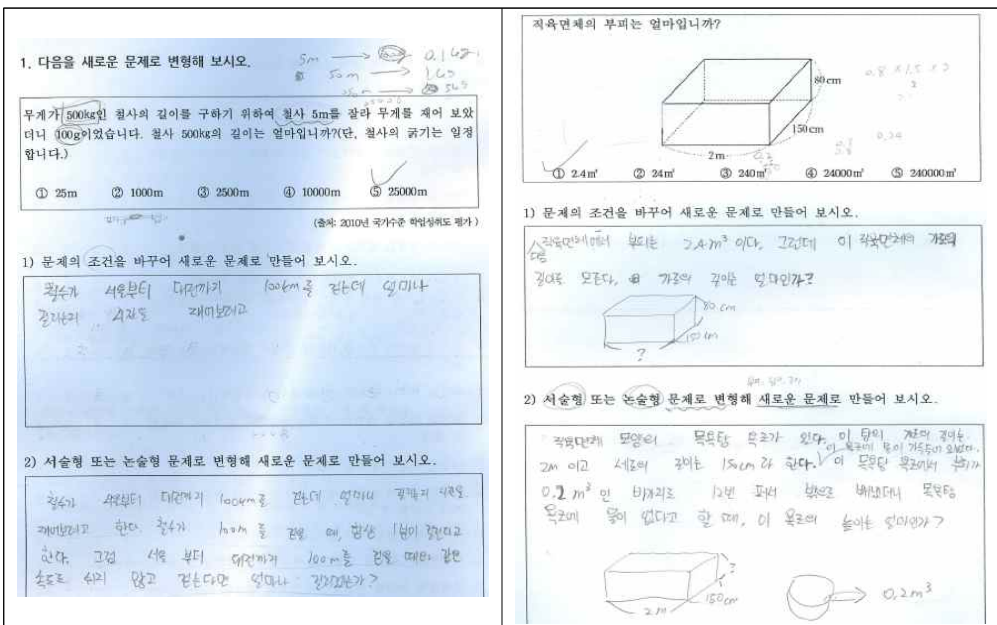 1. 다음을 새로운 문제로 변형해 보시오.
5m → 0.1kg
50m → 1kg
무게가 500kg인 철사의 길이를 구하기 위하여 철사 5m를 잘라 무게를 재어 보았
더니 100g이었습니다. 철사 500kg의 길이는 얼마입니까?(단, 철사의 굵기는 일정
합니다.)
① 25m ② 1000m ③ 2500m ④ 10000m ⑤ 25000m
(출처: 2010년 국가수준 학업성취도 평가)
1) 문제의 조건을 바꾸어 새로운 문제로 만들어 보시오.
철수가 서울부터 대전까지 100km를 걷는데 얼마나
걸리는지 시간을 재어보려고
2) 서술형 또는 논술형 문제로 변형해 새로운 문제로 만들어 보시오.
철수가 서울부터 대전까지 100km를 걷는데 얼마나 걸리는지 시간을
재어보려고 한다. 철수가 100m를 걸을 때, 항상 1분이 걸린다고
한다. 그럼 서울부터 대전까지 100m를 걸을 때와 같은
속도로 쉬지 않고 걷는다면 얼마나 걸리겠는가?
직육면체의 부피는 얼마입니까?
0.8 × 1.5 × 2
80cm
150cm
2m
① 2.4㎥ ② 24㎥ ③ 240㎥ ④ 24000㎥ ⑤ 240000㎥
1) 문제의 조건을 바꾸어 새로운 문제로 만들어 보시오.
직육면체에서 부피는 2.4m³이다. 그런데 이 직육면체의 가로의
길이를 모른다. 가로의 길이는 얼마인가?
80cm
150cm
?
2) 서술형 또는 논술형 문제로 변형해 새로운 문제로 만들어 보시오.
직육면체 모양의 목욕탕 욕조가 있다. 이 탕의 가로의 길이는
2m 이고 세로의 길이는 150cm라 한다. 이 욕조에 물이 가득 들어 있었다. 이 목욕탕 욕조에서 부피가
0.2m³인 바가지로 12번 퍼서 밖으로 빼냈더니 목욕탕
욕조에 물이 없다고 할 때, 이 욕조의 높이는 얼마인가?
?
150cm
2m
0.2m³